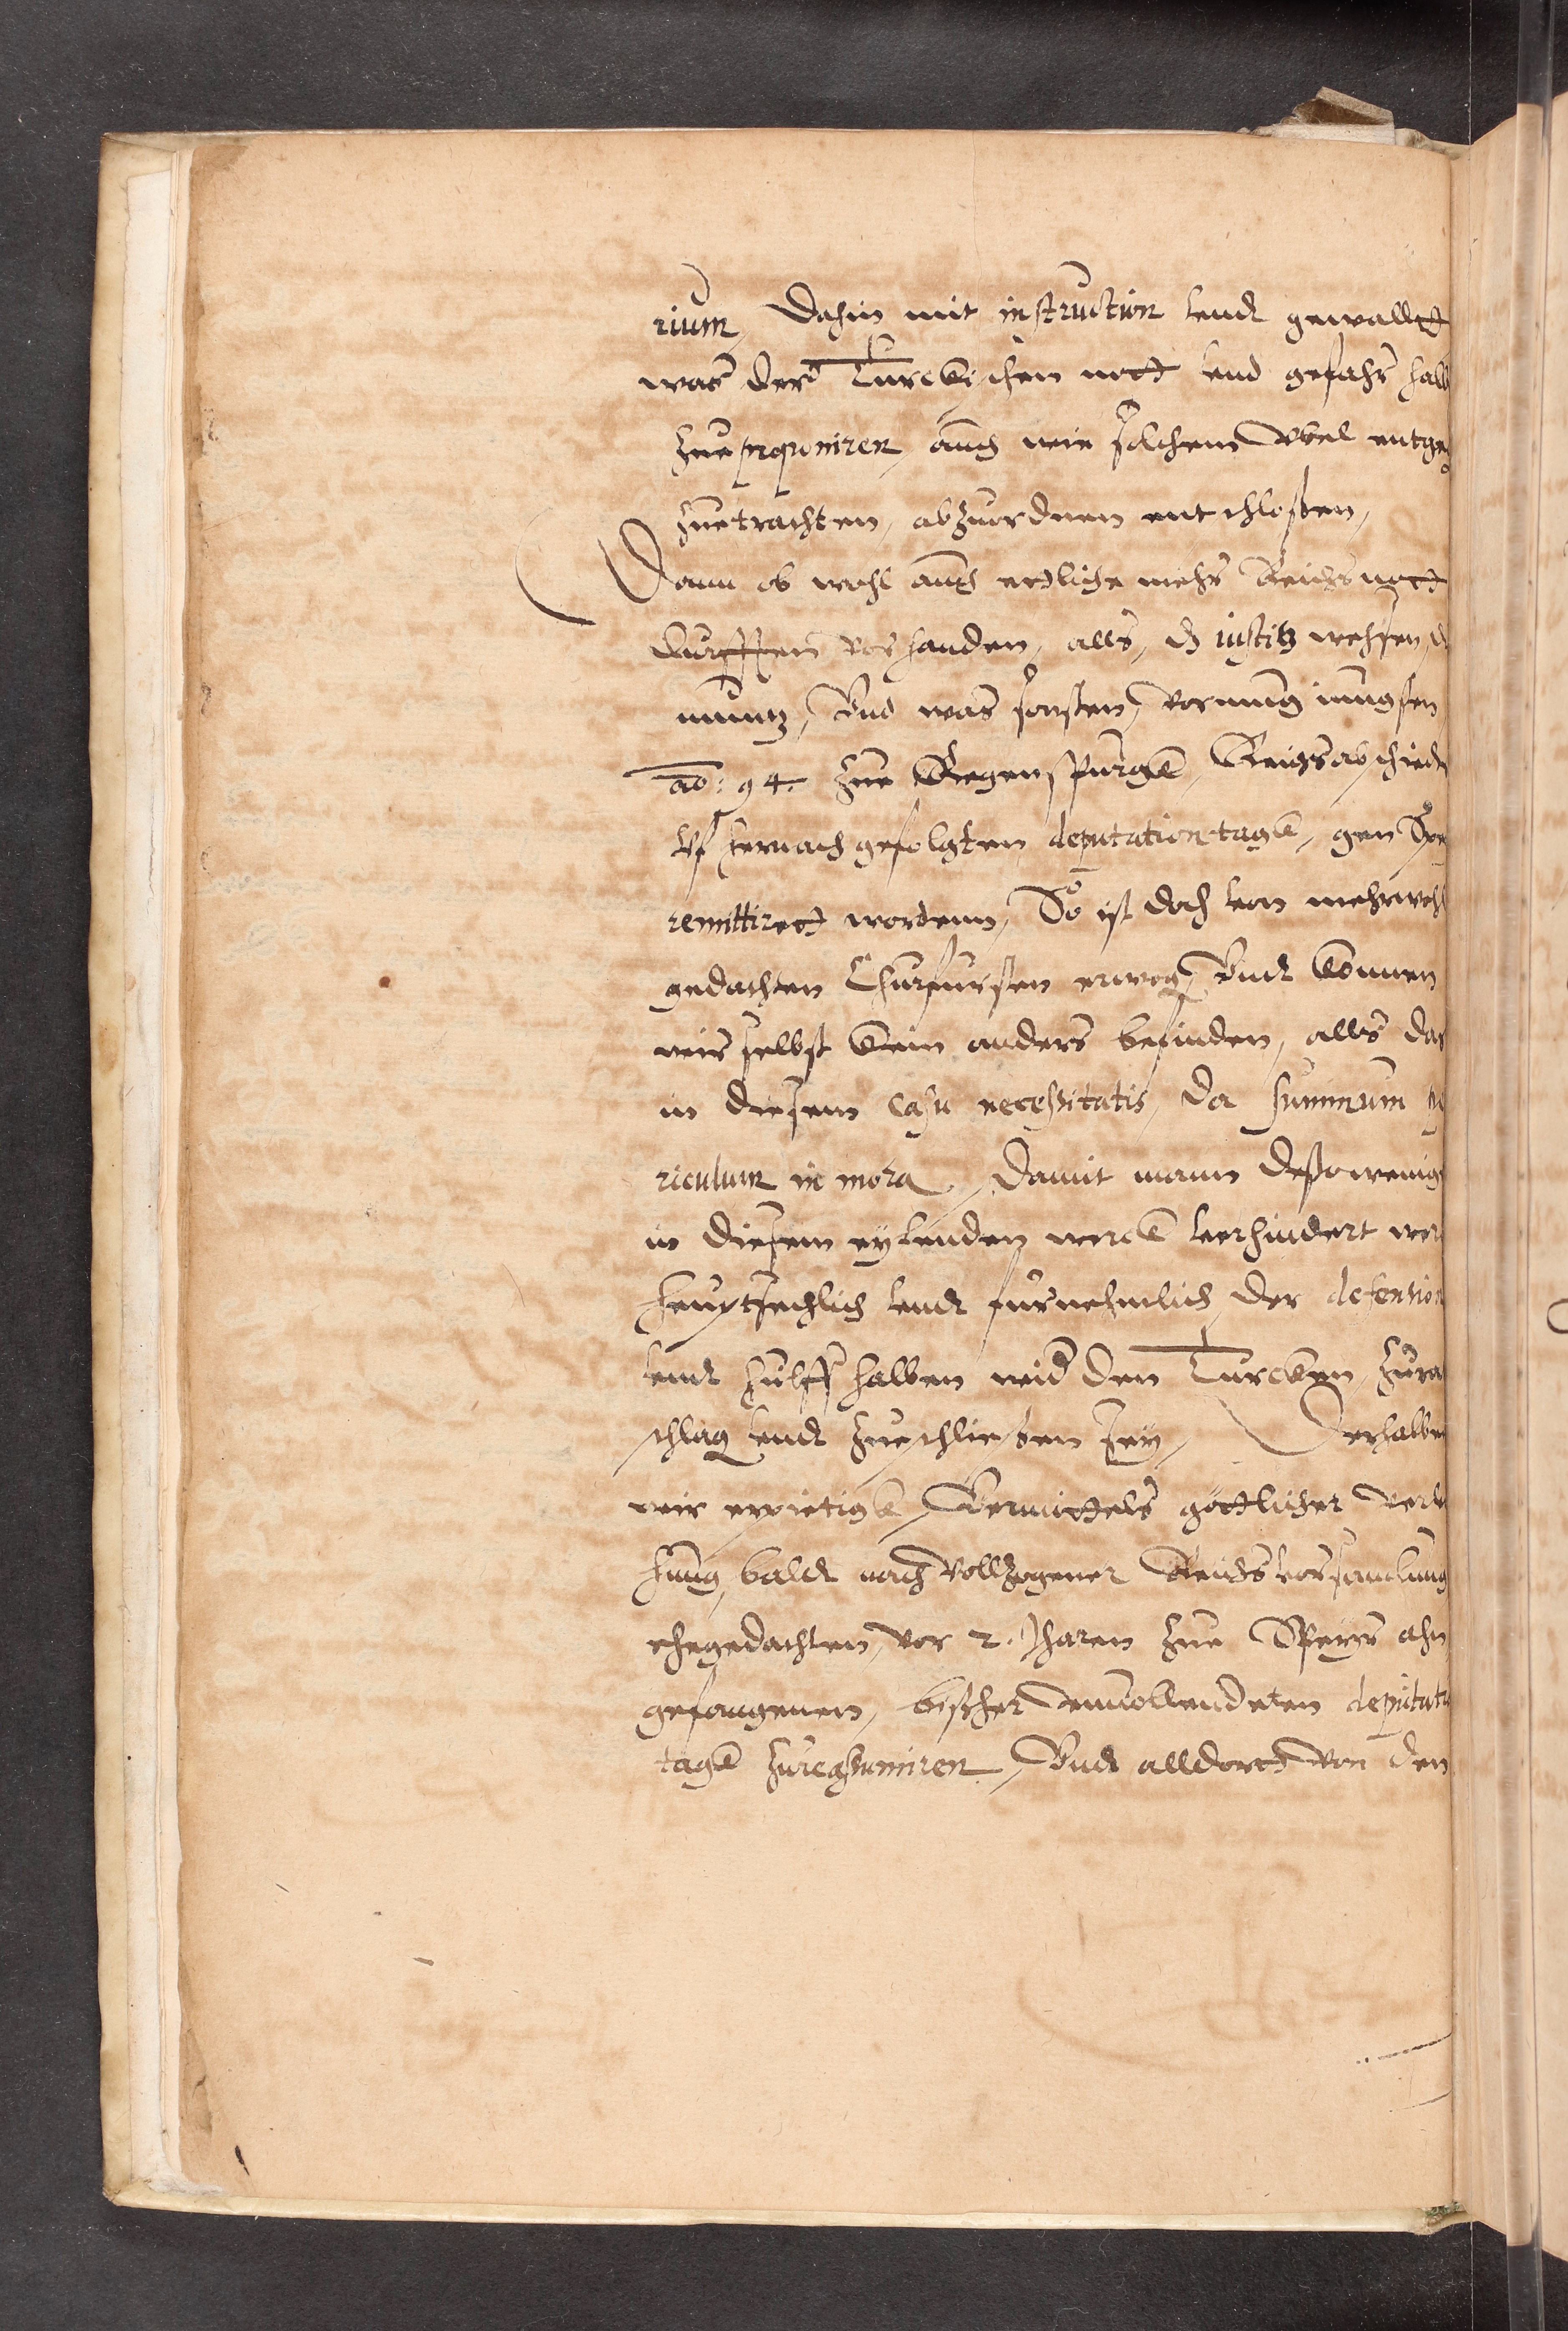 rium, Dahin mit instruction vndt gewallt
was der Turckischen nott vnd gefahr halb
zue proponiren, auch wie solchem Vbel entge
zuetrachten, abzuordnen entschloßen,
Dann ob wohl auch ettliche mehr Reichs nott
durfften vorhanden, alls, dz iustitz wehsen, d
muntz, Vnd was sonsten, vermug iungsten
ao: 94. zue Regenspurgk, Reichsabschiedt
vf hernach gefolgten deputation tagk, gen Spe
remittirett wordenn, So ist doch von mehrwohl
gedachten Churfursten erwog, Vndt können
wir selbst kein anders befinden, alls das
in diesem casu necessitatis, da summum pe
riculum in mora, Damit mann desto wenig
in diesem eylenden werck verhindert wer
heuptsechlich vndt furnehmlich, der defension
vndt hulff halben wid den Turcken, zura
schlag vndt zueschließen sey, Derhalben
wir erpietigk, Vermittels göttlicher verle
hung, baldt nach Vollzogener Reichs versamlung
ehegedachten, vor 2. Jharen zue Speyer ahn
gefangenen, bißher vnuollendeten deputati
tagk zureassumiren, Vndt alldortt von den